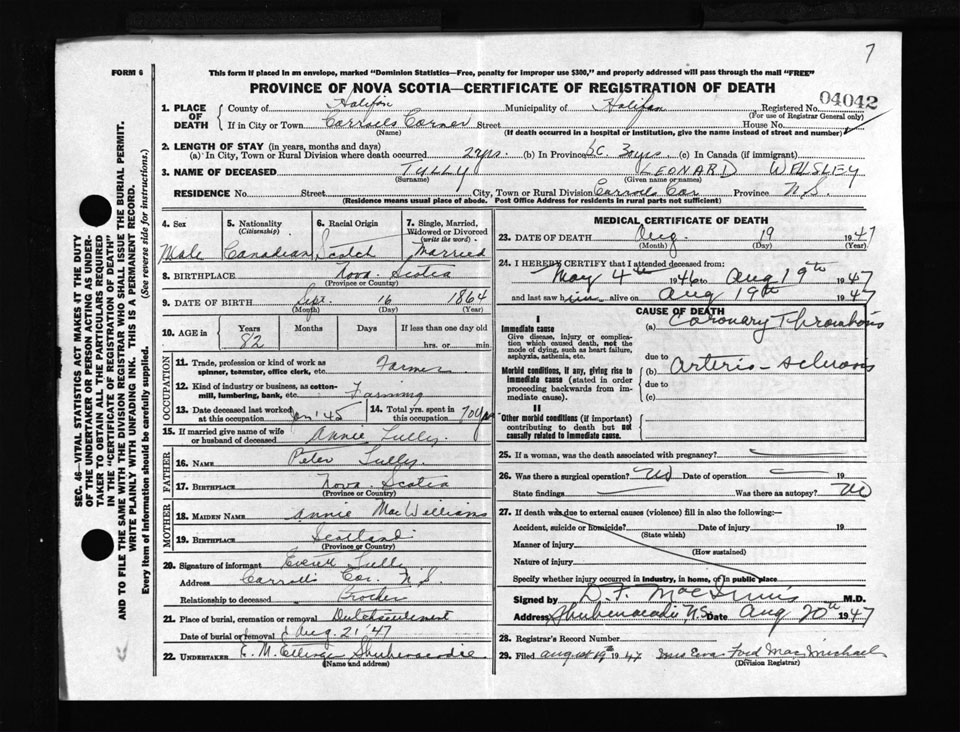 7
FORM 6
This form if placed in an envelope, marked "Dominion Statistics—Free, penalty for improper use $300," and properly addressed will pass through the mail "FREE"
PROVINCE OF NOVA SCOTIA—CERTIFICATE OF REGISTRATION OF DEATH
1. PLACE OF DEATH
County of Halifax Municipality of Halifax Registered No. 04042
(For use of Registrar General only)
If in City or Town Carrolls Corner Street House No.
(Name) (If death occurred in a hospital or institution, give the name instead of street and number)
2. LENGTH OF STAY (in years, months and days)
(a) In City, Town or Rural Division where death occurred 2yrs. (b) In Province (c) In Canada (if immigrant)
3. NAME OF DECEASED TULLY LEONARD
(Surname) (Given name or names)
RESIDENCE No. Street City, Town or Rural Division Carrolls Cor Province N.S.
(Residence means usual place of abode. Post Office Address for residents in rural parts not sufficient)
4. Sex
Male
5. Nationality
(Citizenship)
Canadian
6. Racial Origin
Scotch
7. Single, Married, Widowed or Divorced
(write the word)
Married
8. BIRTHPLACE Nova Scotia
(Province or Country)
9. DATE OF BIRTH Sept. 16 1864
(Month) (Day) (Year)
10. AGE
Years Months Days If less than one day old
82 hrs. or min.
OCCUPATION
11. Trade, profession or kind of work as
spinner, teamster, office clerk, etc. Farmer
12. Kind of industry or business, as cotton-
mill, lumbering, bank, etc. Farming
13. Date deceased last worked at this occupation Jan '45
14. Total yrs. spent in this occupation 70 yrs
15. If married give name of wife
or husband of deceased Annie Tully
FATHER
16. NAME Peter Tully.
17. BIRTHPLACE Nova Scotia
(Province or Country)
MOTHER
18. MAIDEN NAME Annie MacWilliams
19. BIRTHPLACE Scotland
(Province or Country)
20. Signature of informant Everett Tully
Address Carrolls Cor. N.S.
Relationship to deceased Brother
21. Place of burial, cremation or removal Dutch settlement
Date of burial or removal Aug. 21 '47
22. UNDERTAKER E. M. Shubenacadie
(Name and address)
MEDICAL CERTIFICATE OF DEATH
23. DATE OF DEATH Aug. 19 1947
(Month) (Day) (Year)
24. I HEREBY CERTIFY that I attended deceased from:
May 4th 1946 to Aug 19th 1947
and last saw him alive on Aug 19th 1947
CAUSE OF DEATH
I
Immediate cause
Give disease, injury or complica-
tion which caused death, not the
mode of dying, such as heart failure,
asphyxia, asthenia, etc.
(a) Coronary Thrombosis
due to
Morbid conditions, if any, giving rise to
immediate cause (stated in order
proceeding backwards from im-
mediate cause).
(b) Arterio-sclerosis
due to
(c)
II
Other morbid conditions (if important)
contributing to death but not
causally related to immediate cause.
25. If a woman, was the death associated with pregnancy?
26. Was there a surgical operation? No Date of operation 19
State findings Was there an autopsy? No
27. If death was due to external causes (violence) fill in also the following:—
Accident, suicide or homicide? Date of injury 19
(State which)
Manner of injury
(How sustained)
Nature of injury
Specify whether injury occurred in industry, in home, or in public place
Signed by D. F. MacInnis M.D.
Address Shubenacadie, N.S. Date Aug 20th 1947
28. Registrar's Record Number
29. Filed August 19th 1947 Mrs Eva Ford MacMichael
(Division Registrar)
SEC. 46—VITAL STATISTICS ACT MAKES IT THE DUTY
OF THE UNDERTAKER OR PERSON ACTING AS UNDER-
TAKER TO OBTAIN ALL THE PARTICULARS REQUIRED
IN THE "CERTIFICATE OF REGISTRATION OF DEATH"
AND TO FILE THE SAME WITH THE DIVISION REGISTRAR WHO SHALL ISSUE THE BURIAL PERMIT.
WRITE PLAINLY WITH UNFADING INK. THIS IS A PERMANENT RECORD.
Every Item of Information should be carefully supplied. (See reverse side for instructions.)